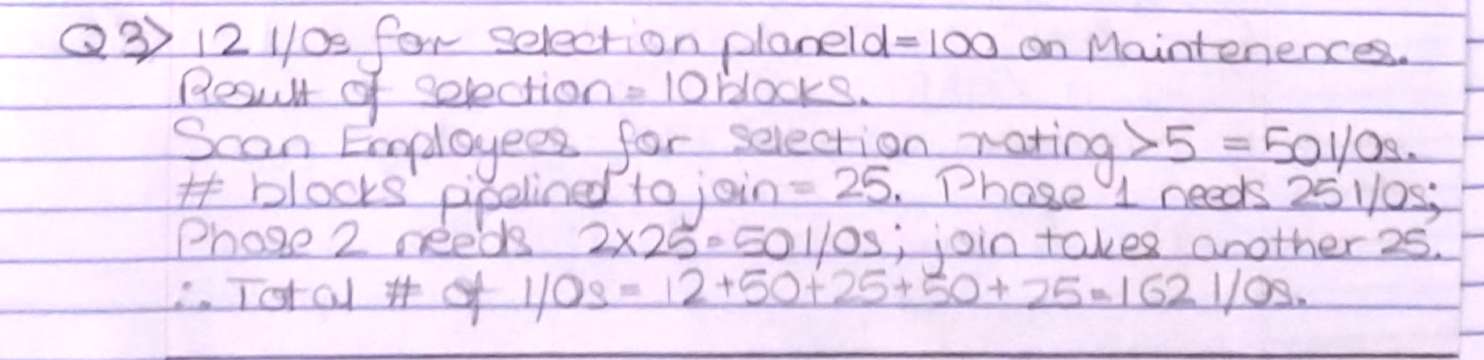 Q3> 12 I/Os for selection planeId=100 on Maintenences.
Result of selection = 10 blocks.
Scan Employees for selection rating>5 = 50 I/Os.
# blocks pipelined to join = 25. Phase 1 needs 25 I/Os;
Phase 2 needs 2x25=50 I/Os; join takes another 25.
∴ Total # of I/Os = 12+50+25+50+25=162 I/Os.